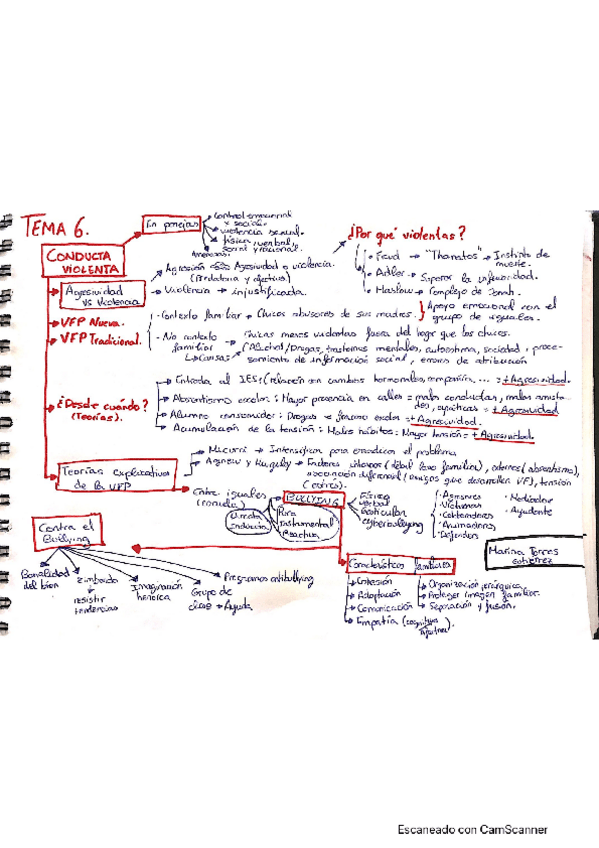 TEMA 6.
CONDUCTA VIOLENTA
En parejas
Control emocional y social.
violencia sexual.
física, verbal,
Amenazas.
Agresividad vs Violencia
Agresión
Agresividad o violencia.
(Predatoria y afectiva)
Violencia → injustificada.
¿Por qué violentas?
Freud → "Thanatos" → Instinto de muerte.
Adler → Superar la inferioridad.
Maslow → Complejo de Jonah.
Apoyo emocional con el grupo de iguales.
VFP Nueva.
VFP Tradicional.
- Contexto familiar → Chicos abusores de sus madres.
- No contexto familiar
Chicas menos violentas fuera del hogar que los chicos.
Causas
(Alcohol/Drogas, trastornos mentales, autoestima, sociedad, procesamiento de información social, errores de atribución
¿Desde cuándo? (Teorías).
Entrada al IES: (relación con cambios hormonales, compañías, ... = + Agresividad.
Absentismo escolar: Mayor presencia en calles = malas conductas, malas amistades, = + Agresividad
Alumno consumidor: Drogas + fracaso escolar = + Agresividad.
Acumulación de la tensión: Malos hábitos = Mayor tensión = + Agresividad.
Teorías explicativas de la VFP
Micucci → Intensifican para erradicar el problema
Agnew y Huguley → Factores internos (débil lazo familiar), externos (absentismo), asociación diferencial (amigos que desarrollan VF), tensión (estrés).
Entre iguales (escuela)
BULLYING
Física
verbal
exclusión
cyberbullying
Pura
Instrumental
Reactiva
- Agresores
- Víctimas
- Animadores
- Defensor
- Mediador
- Ayudante
Contra el Bullying
Banalidad del bien
Zimbardo → resistir tendencias
Imaginación heroica
Grupo de clase → Ayuda
Programas antibullying
Características familiares
Cohesión
Adaptación
Comunicación
Empatía (cognitiva
Organización jerárquica.
Proteger imagen familiar.
Separación y fusión.
Marina Torres Gutiérrez
Escaneado con CamScanner